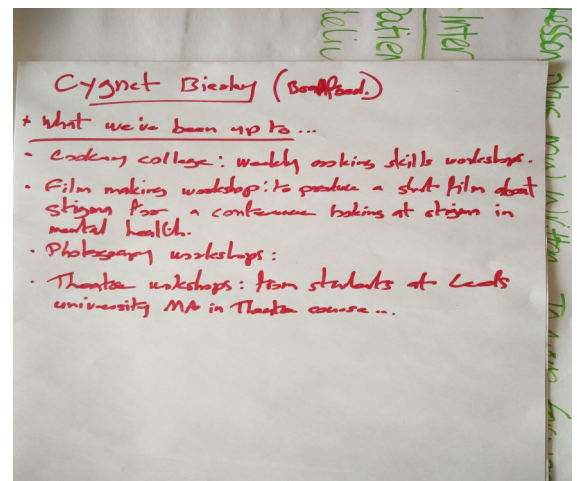 Cygnet Bierley (Bradford.)
* What we've been up to...
- Cookery college: weekly cooking skills workshops.
• Film making workshop: to produce a short film about
stigma for a conference looking at stigma in
mental health.
• Photography workshops:
• Theatre workshops: from students at Leeds
university MA in Theatre course...
Inter